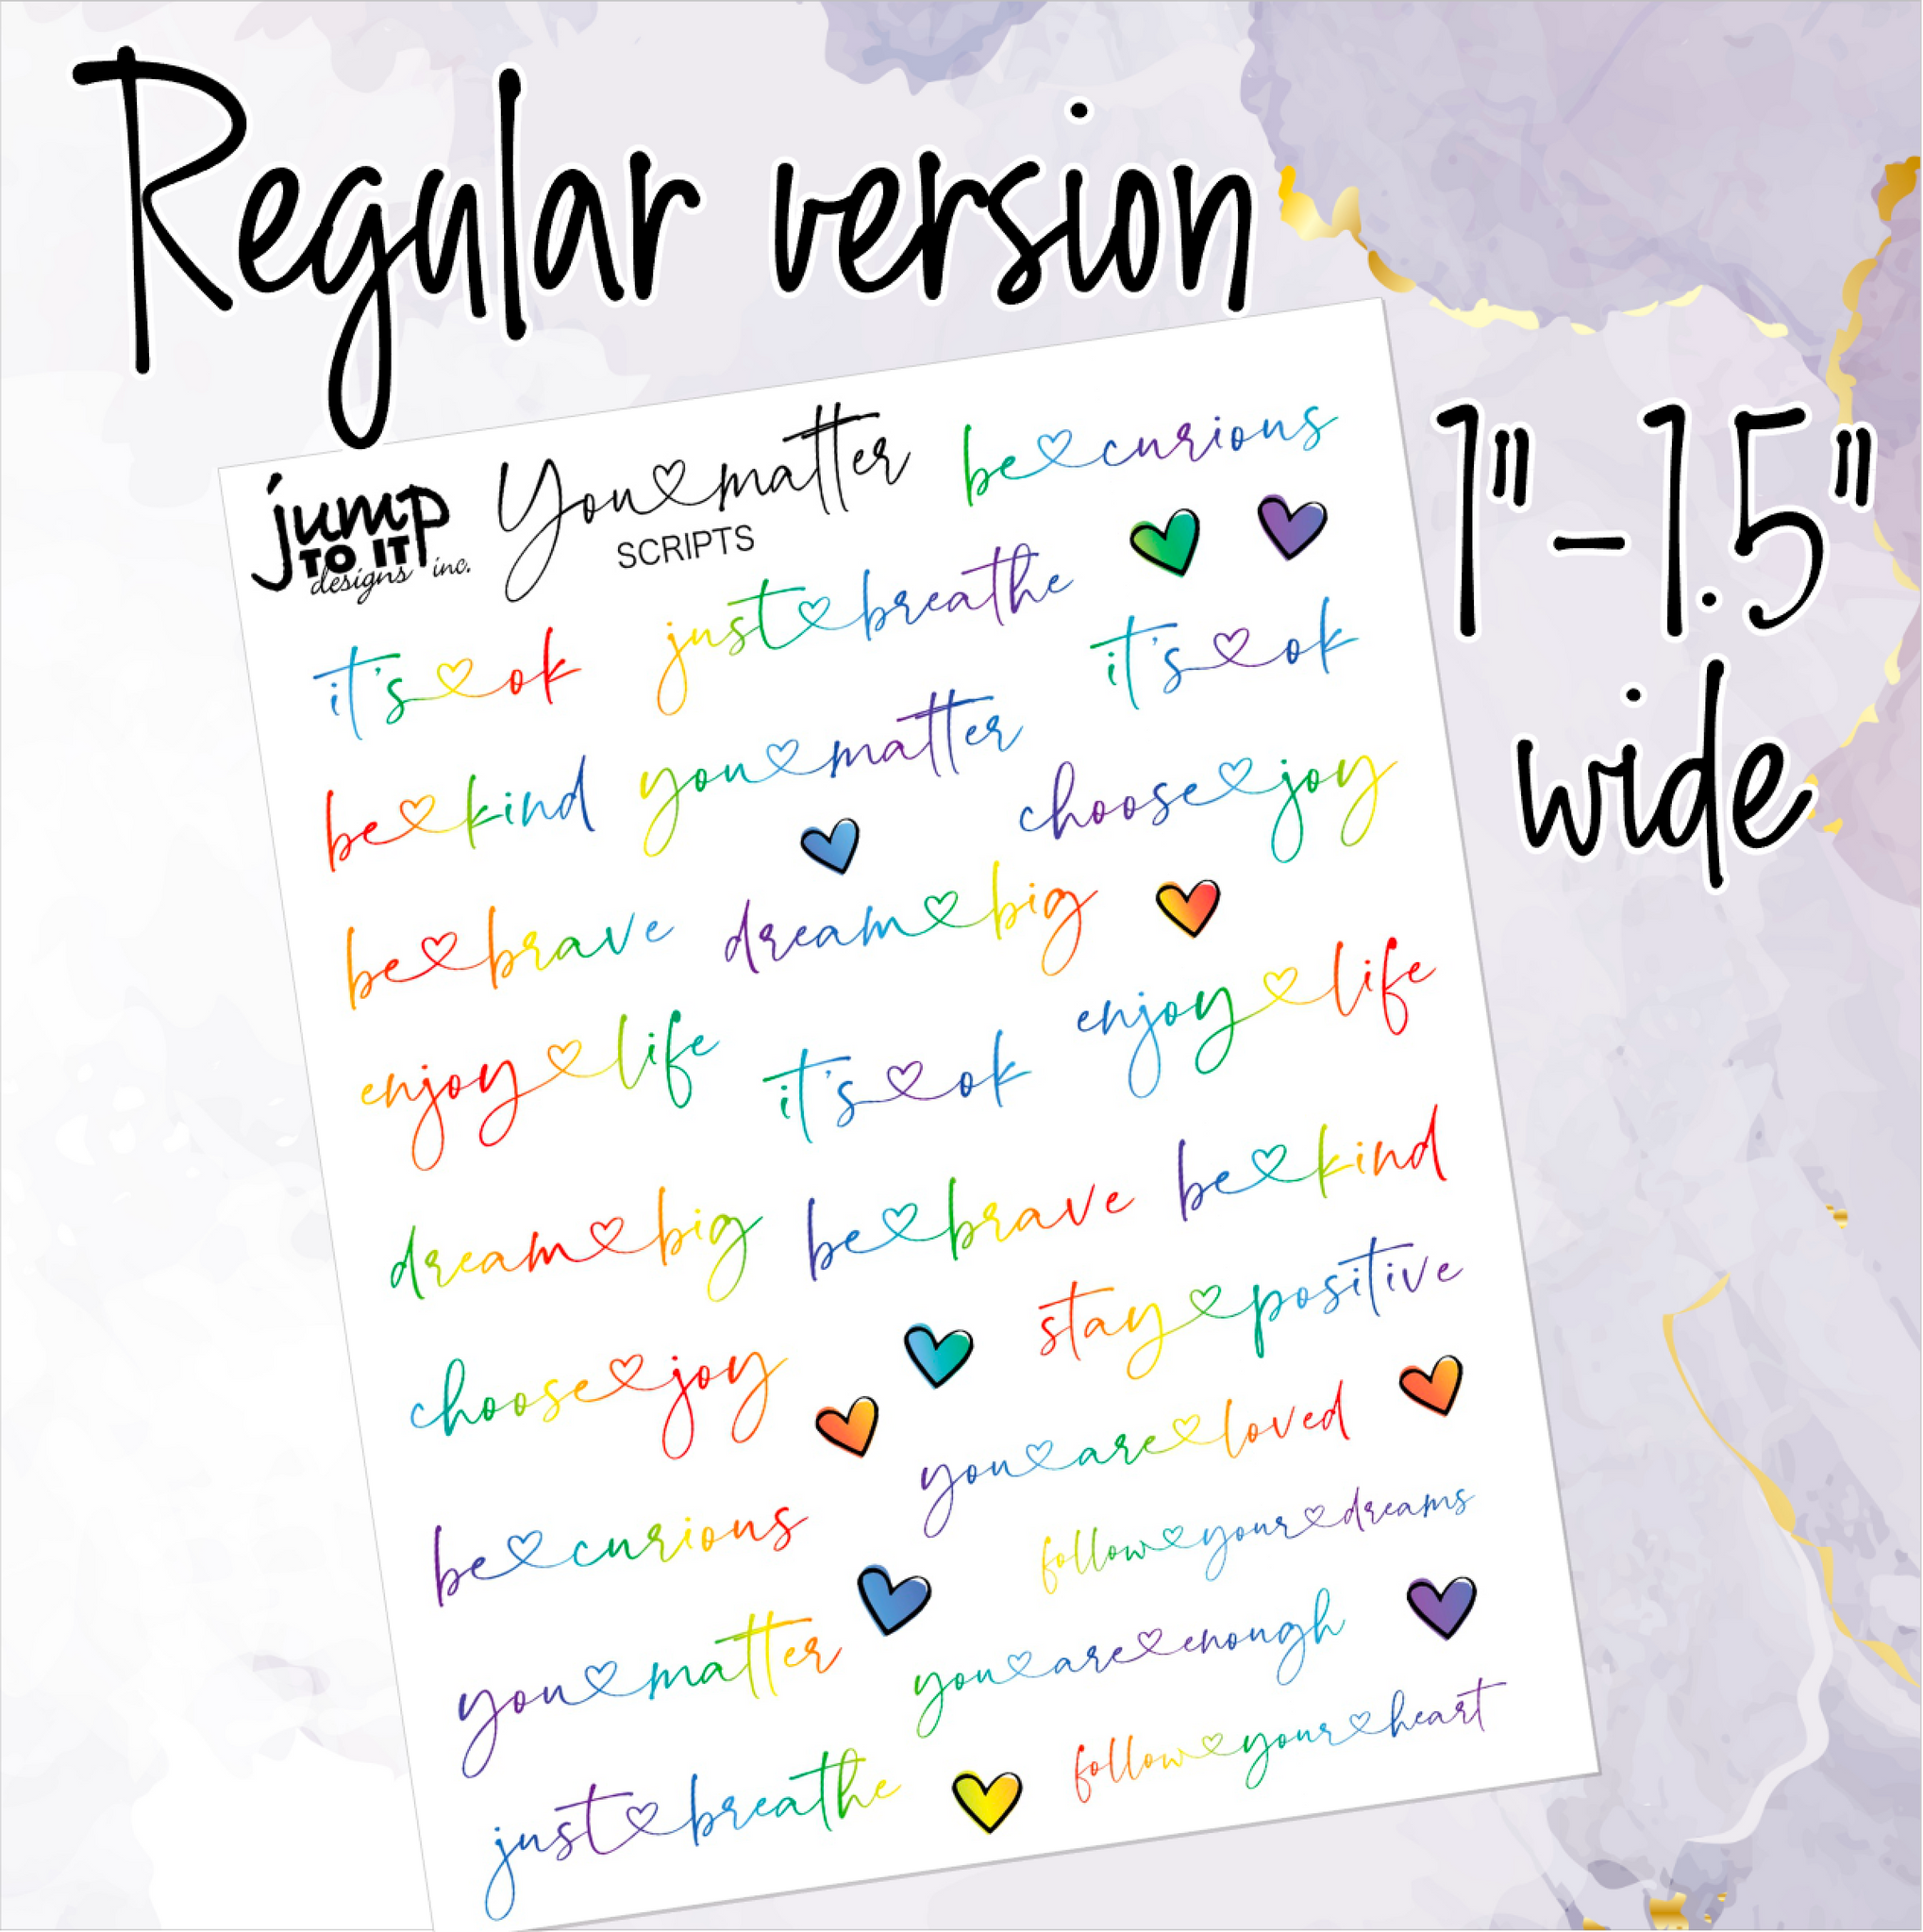 Regular version
1"-1.5"
wide
jump
TO IT
designs inc.
You matter
SCRIPTS
be curious
it's ok
just breathe
it's ok
be kind
you matter
choose joy
be brave
dream big
enjoy life
enjoy life
it's ok
dream big
be brave
be kind
choose joy
stay positive
you are loved
be curious
follow your dreams
you matter
you are enough
just breathe
follow your heart